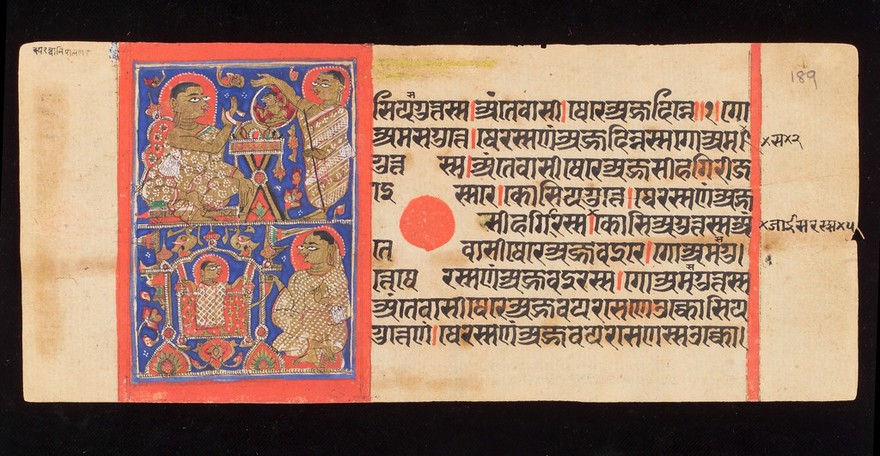 सियगुत्तस्स।अंतेवासी।थेरे अज्जदिन्ने॥१।गो
अमसगुत्ते।थेरस्सणं अज्जदिन्नस्स गोअम
गुत्तस्स।अंतेवासी।थेरे अज्जसीहगिरी जा
इस्सरे।कोसियगुत्ते।थेरस्सणं अज्ज
सीहगिरिस्स कोसिअगुत्तस्स अं
तेवासी।थेरे अज्जवइरे।गोअमसगु
त्ते।थेरस्सणं अज्जवइरस्स।गोअमसगुत्तस्स
अंतेवासी।थेरे अज्जवयरसेणे उक्कोसिय
गुत्तेणं।थेरस्सणं अज्जवयरसेणस्स उक्को
×स×२
×जाईसरस्स×५
189